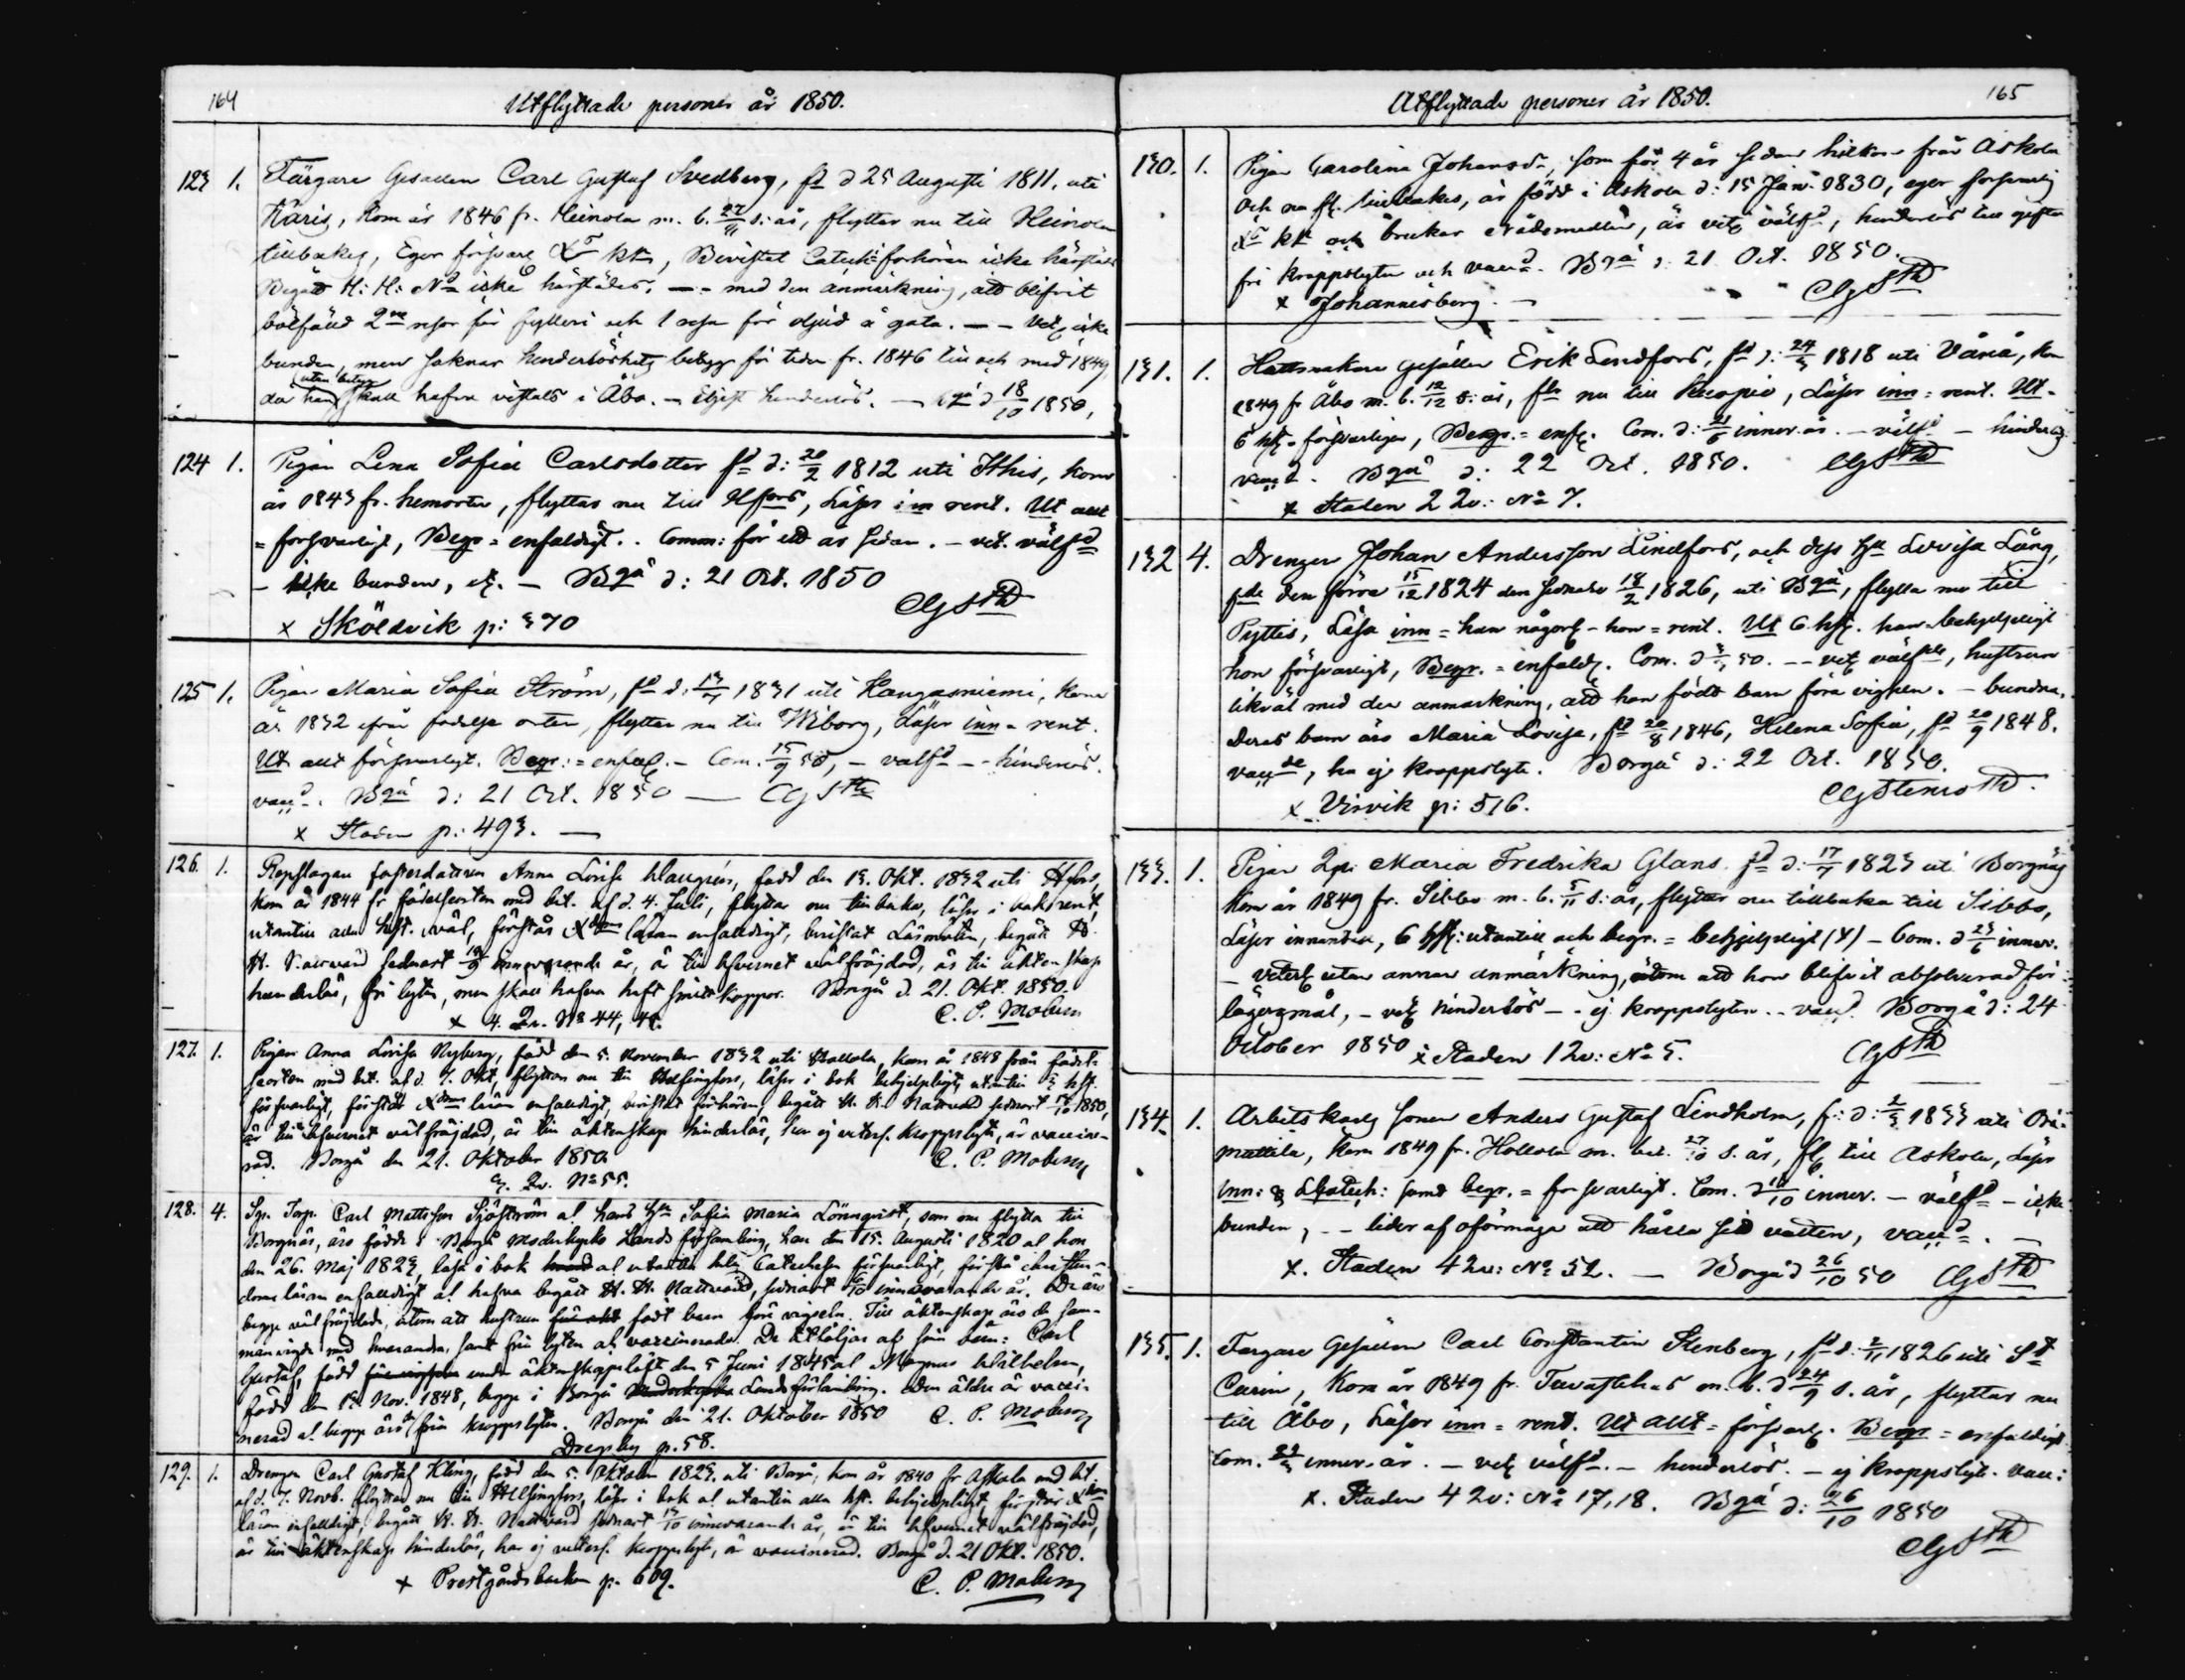 164
Utflyttade personer år 1850.
123 1. Färgare Gesällen Carl Gustaf Svedberg, fd d 25 Augusti 1811, uti
Karis, kom år 1846 fr. Heinola m. b. 27/11 s. år, flyttar nu till Heinola
tillbakes, Eger försvarl Xs kkn, Bevistat Catech: forhören icke härstädes
Begått H: H: Nd icke härstädes. — med den anmärkning, att blifvit
bötfälld 2ne resor för fylleri och 1 resa för oljud å gata. — — Vet. icke
bunden, men saknar hinderlöshets betyg för tiden fr. 1846 till och med 1849,
utan betyg
da han skall hafva vistats i Åbo. — hinderlös. — Bgå d 18/10 1850,
124 1. Pigan Lena Sofia Carlsdotter fd d: 20/2 1812 uti Ithis, kom
år 1843 fr. hemorten, flyttar nu till Hfors, Läser inn rent. Ut allt
= försvarligt, Begr = enfaldigt. Comm: för ett år sedan. — vet. välfd
— icke bunden, — Bgå d: 21 Oct. 1850
x Sköldvik p: 370 CGSth
125 1. Pigan Maria Sofia Ström, fd d: 13/7 1831 uti Kangasniemi, kom
år 1832 ifrån födelse orten, flyttar nu till Wiborg, Läser inn = rent.
Ut allt försvarligt. Begr: = enfal. — Com. 15/9 50, — valfd — hinderlös.
vacd. Bgå d: 21 Oct. 1850 — CGSth
x Staden p: 493. —
126. 1. Repslagare fosterdottren Anna Lovisa, född den 13. Okt. 1832 uti Hfors,
kom år 1844 fr födelseorten med bet. af d. 4. Juli, flyttar nu tillbaka, läser i bok rent,
utantill alla hst. väl, förstår Xdoms läran enfaldigt, bevistat Läsmöten, begått H.
H. Nattvard sednast 19/9 innevarande år, är till lefvernet välfräjdad, är till äktenskap
hinderlös, fri lyten, men skall hafva haft smittkoppor. Borgå d. 21. Okt. 1850.
x 4. Qv. No 44, C. P. Moberg
127. 1. Pigan Anna Lovisa Nyberg, född den 5. November 1832 uti Hollola, kom år 1848 från födel-
seorten med bet. af d. 7. Okt, flyttar nu till Helsingfors, läser i bok behjelpligt, utantill 3 hst.
försvarligt, förstår Xdoms läran enfaldigt, bevistat förhören, begått H. H. Nattvard sednast 1850,
är till lefvernet välfräjdad, är till äktenskap hinderlös, har ej vetersl. kroppslyte, är vaccine-
rad. Borgå den 21. Oktober 1850. C. P. Moberg
3. Qv. No 55.
128. 4. Torp. Carl Mattsson Sjöström och hans hu Sofia Maria Lönnqvist, som nu flytta till
Borgnäs, äro födde i Borgå Moderkyrko Lands församling, han den 15. Augusti 1820 och hon
den 26. Maj 1823, läsa i bok och utantill hela Catechesen försvarligt, förstå christen-
doms läran enfaldigt och hafva begått H. H. Nattvard, sednast innevarande år. De äro
begge välfräjdade, utom att hustrun födt barn före vigseln. Till äktenskap äro de sam-
manvigde med hvarandra, samt fria lyten och vaccinerade. De åtföljas af sina barn: Carl
Gustaf, född under äktenskapslöfte den 5 Juni 1845 och Magnus Wilhelm,
född den 13. Nov. 1848, begge i Borgå Lands församling. Den äldre är vacci-
nerad och begge äro fria kroppslyten. Borgå den 21. Oktober 1850 C. P. Moberg
Dregsby p. 58.
129. 1. Drengen Carl Gustaf Kling, född den 5. Oktober 1823. uti Borgå, kom år 1840 fr Askola med bet.
af d. 7. Novb. flyttar nu till Helsingfors, läser i bok och utantill alla hst. behjelpligt, förstår Xdoms
läran enfaldigt, begått H. H. Nattvard sednast innevarande år, är till lefvernet välfräjdad,
är till äktenskap hinderlös, har ej vetersl. kroppslyte, är vaccinerad. Borgå d. 21 Okt. 1850.
x Prestgårdsbacken p. 609. C. P. Moberg
Utflyttade personer år 1850.
165
130. 1. Pigan Carolina Johansdr, som för 4 år sedan hitkom från Askola
och nu fl. tillbakes, är född i Askola d: 15 Jan. 1830, eger försvarlig
Xs kk och brukar nådemedlen, är vet. välfd, hinderlös till gifte
fri kroppslyten och vaccd. Bgå d. 21 Oct. 1850.
x Johannisberg. — CGSth
131. 1. Hattmakare gesällen Erik Lindfors, fd d: 24/3 1818 uti Vånå, kom
1849 fr Åbo m. b. 12/12 s: år, fltr nu till Kuopio, Läser inn = rent. Ut =
6 hst = försvarligen, Begr. = enf. Com. d: 21/6 innev. år. — välfd — hinderlös
vacd. Bgå d: 22 Oct. 1850. CGSth
x Staden 2 Qv: No 7.
132 4. Drengen Johan Andersson Lindfors, och dess hu Lovisa Lång,
fde den förra 15/12 1824 den sednare 18/2 1826, uti Bgå, flytta nu till
Pyttis, Läsa inn = han någorl. — hon = rent. Ut 6 hst. han behjelpligt
hon försvarligt, Begr. = enfald. Com. d 50. — vet. välfde, hustrun
likväl med den anmärkning, att hon födt barn före vigseln. — bundna.
Deras barn äro Maria Lovisa, fd 20/8 1846, Helena Sofia, fd 20/9 1848.
vaccde, ha ej kroppslyte. Borgå d: 22 Oct. 1850.
x Virvik p: 516. CGStenroth.
133. 1. Pigan Maria Fredrika Glans fd d: 17/7 1823 uti Borgnäs
kom år 1849 fr. Sibbo m. b. 5/11 s: år, flyttar nu tillbaka till Sibbo,
Läser innantill, 6 hst: utantill och begr. = behjelpligt (4) — Com. d innev.
— veterl. utan annan anmärkning, än att hon blifvit absolverad för
lägersmål, — vet. hinderlös — ej kroppslyten — vacd. Borgå d: 24
October 1850 x Staden 1 Qv: No 5. CGSth
134. 1. Arbetskarls sonen Anders Gustaf Lindholm, f: d: 2/3 1833 uti Ori-
mattila, kom 1849 fr. Hollola m. bet. 27/10 s. år, fl. till Askola, Läser
inn: & LCatech: samt begr. = försvarligt. Com. d 14/10 innev. — välfd — icke
bunden, — lider af oförmåga att hålla sitt vatten, vaccd. —
x. Staden 4 Qv: No 52. — Borgå d 26/10 50 CGSth
135. 1. Färgare Gesällen Carl Constantin Stenberg, fd d. 2/11 1826 uti St
Carin, Kom år 1849 fr. Tavastehus m. b. d 24/9 s. år, flyttar nu
till Åbo, Läser inn = rent. Ut allt = försvarl. Begr = enfaldigt
Com. innev. år. — vet. välfd. — hinderlös. — ej kroppslyte. vacc:
x. Staden 4 Qv: No 17,18. Bgå d: 26/10 1850
CGSth